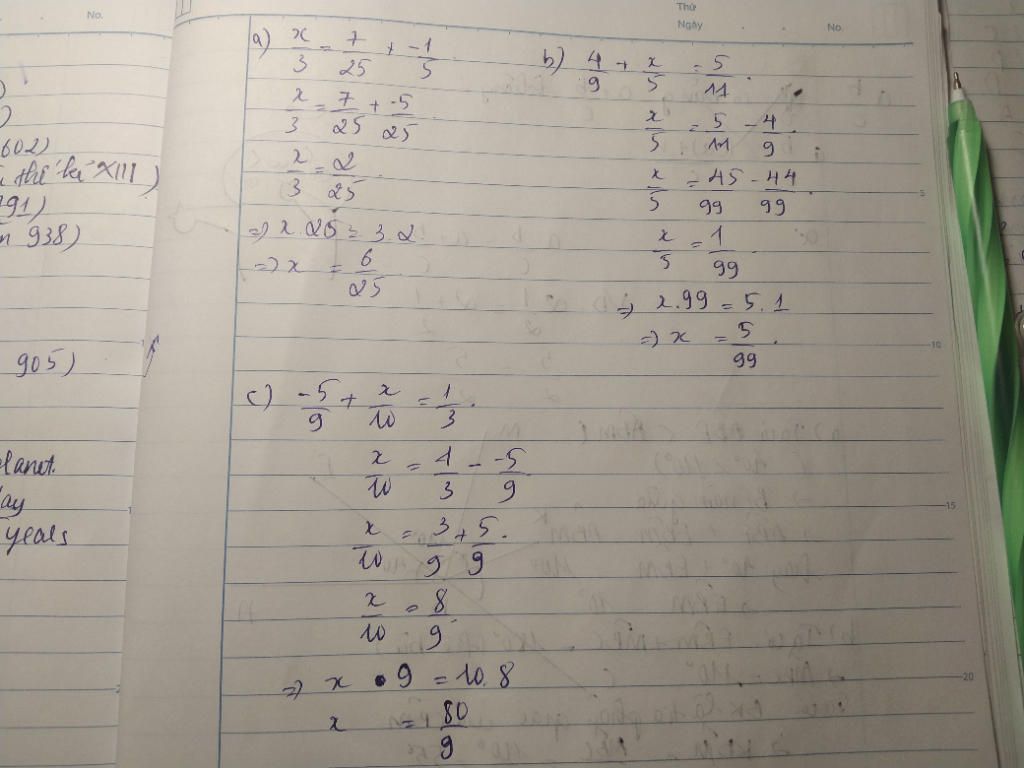 No.
Thứ
Ngày
No.
602)
thế kỉ XIII)
791)
938)
905)
lanet.
ay
yeals
a) x/3 = 7/25 + -1/5
x/3 = 7/25 + -5/25
x/3 = 2/25
=> x.25 = 3.2
=> x = 6/25
b) 4/9 + x/5 = 5/11.
x/5 = 5/11 - 4/9.
x/5 = 45/99 - 44/99.
x/5 = 1/99
=> x.99 = 5.1
=> x = 5/99.
c) -5/9 + x/10 = 1/3.
x/10 = 1/3 - -5/9
x/10 = 3/9 + 5/9.
x/10 = 8/9
=> x . 9 = 10.8
x = 80/9
5
10
15
20